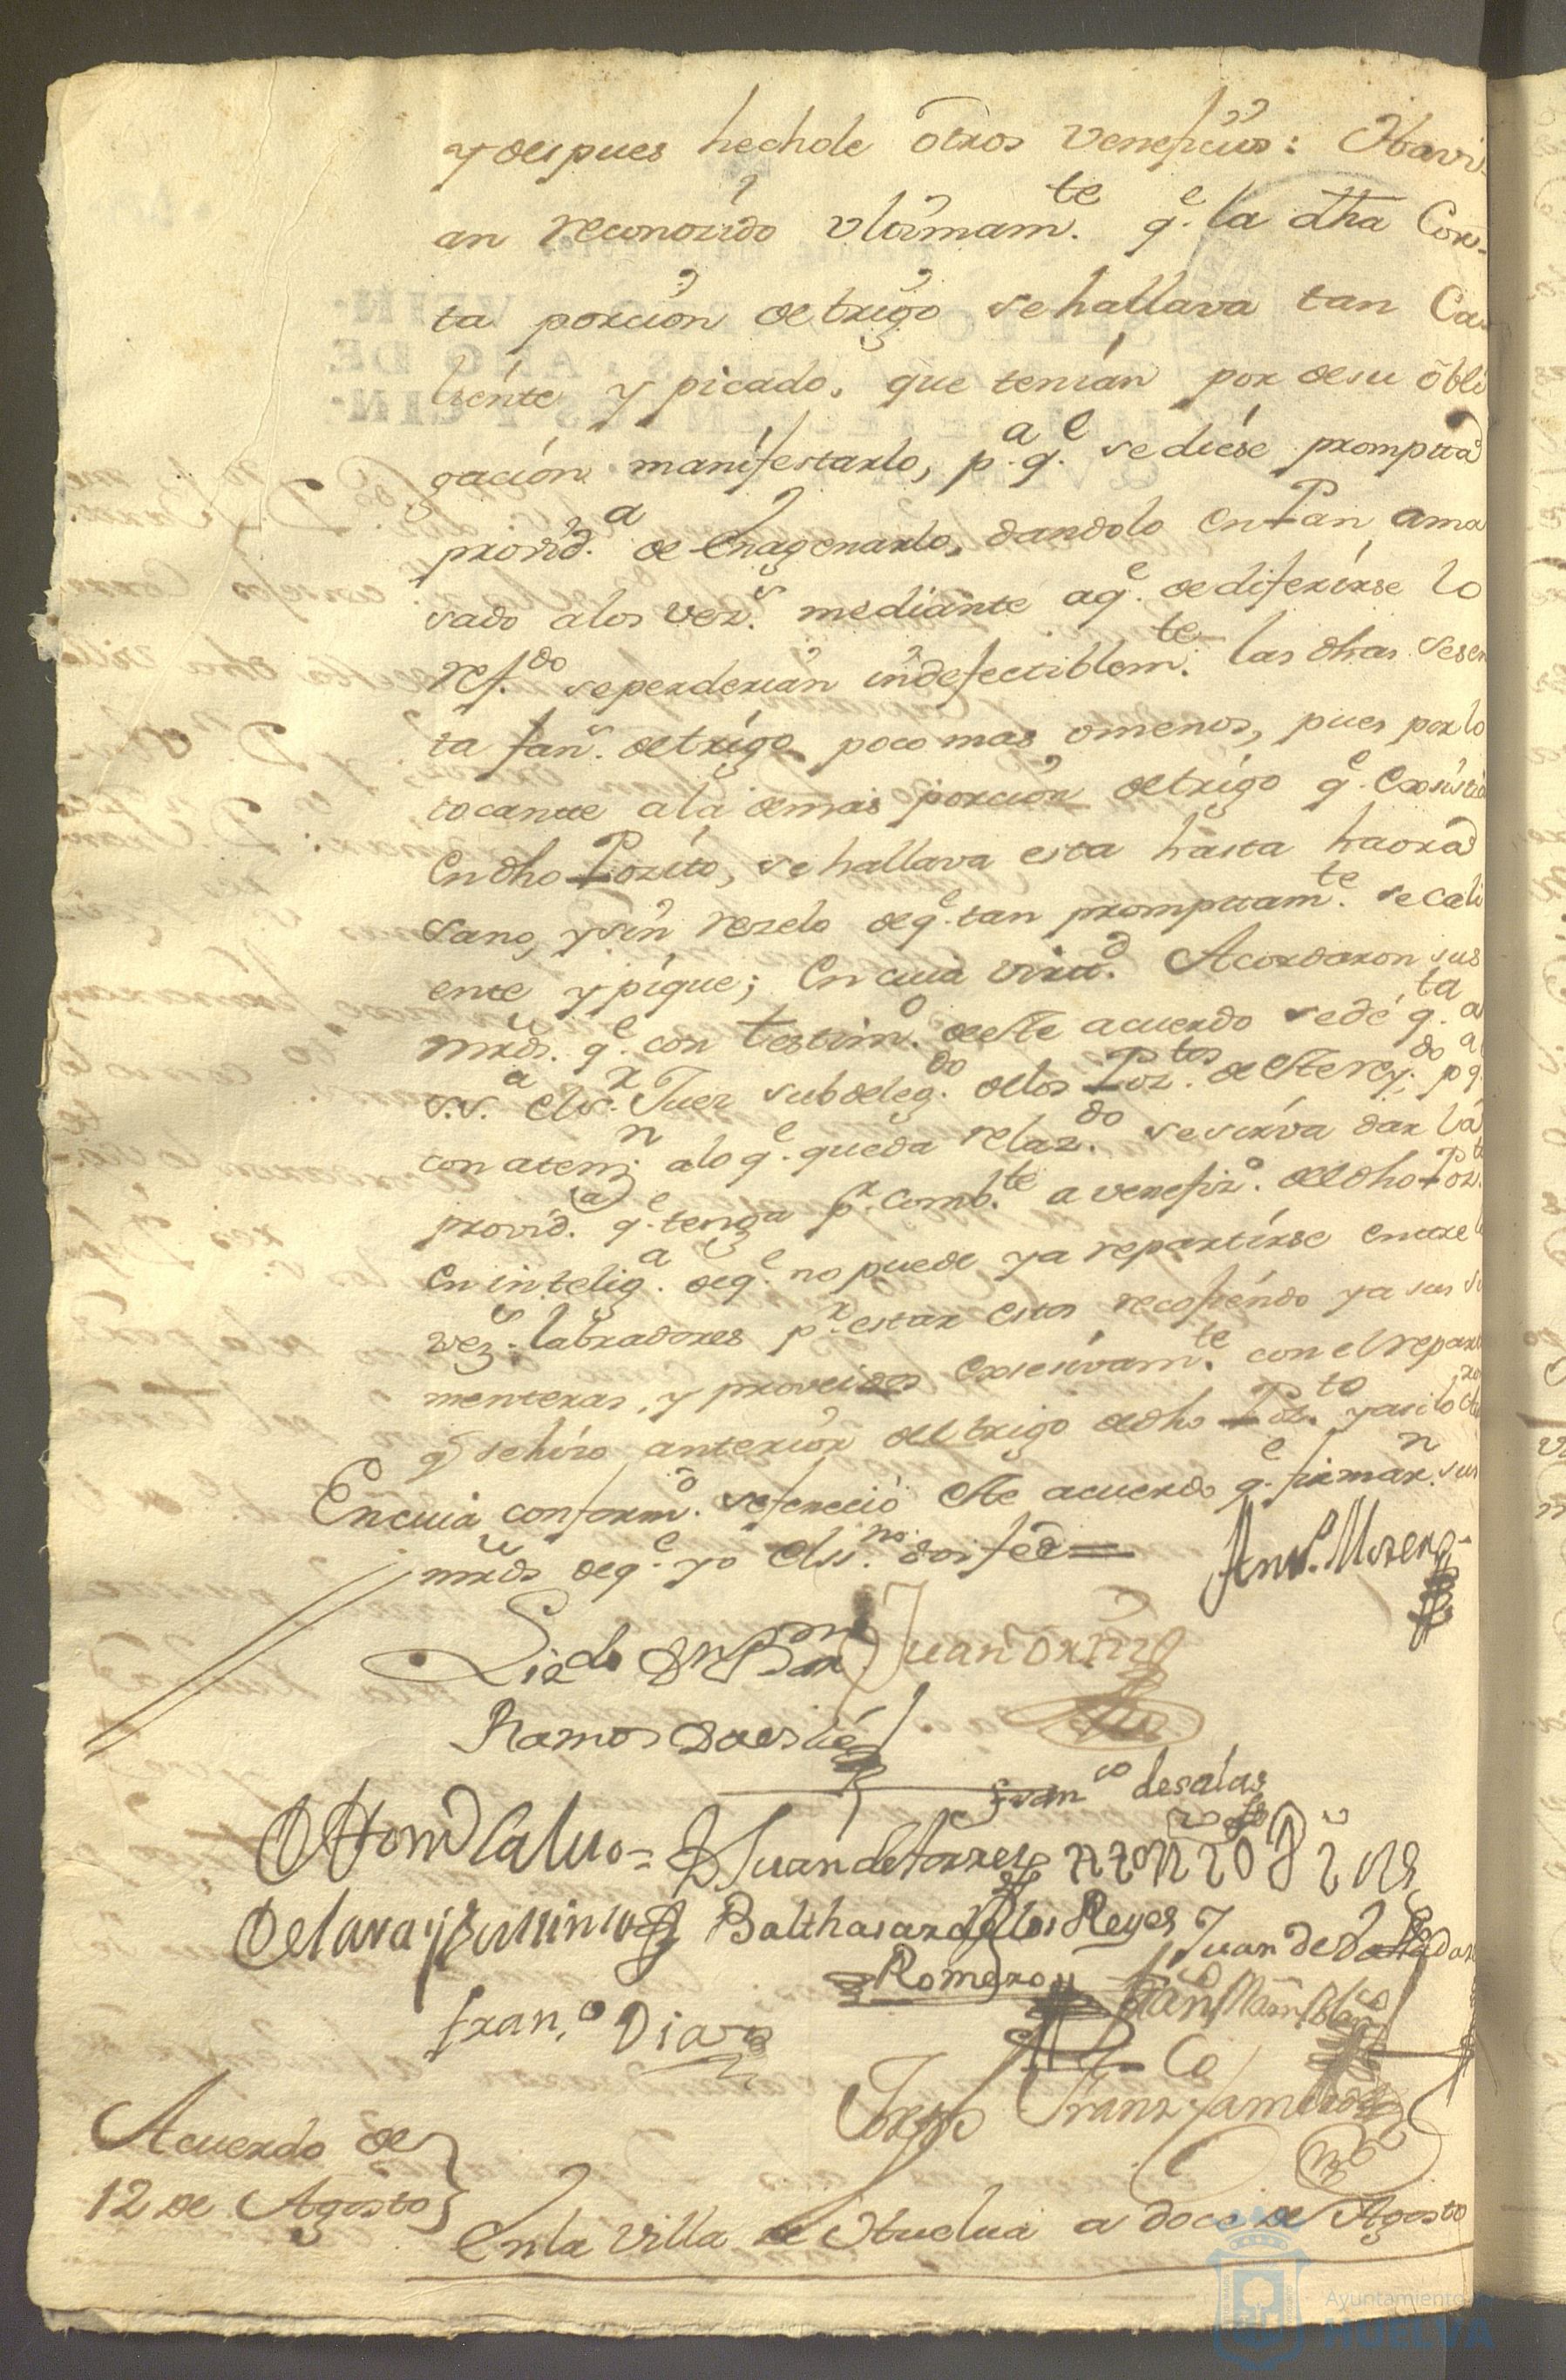 y despues hechole otros veneficios: Havi-
an reconozido vltimam.te q.e la dha Cor-
ta porcion de trigo se hallava tan Ca-
liente y picado, que tenian por de su obli
gacion manifestarlo, p.a q.e se diese prompta
provid.a de Enagenarlo, dandolo En Pan ama
sado a los vez.s mediante a q.e de diferirse lo
ref.do se perderian indefectiblem.te las dhas sesen
ta fan.s de trigo poco mas o menos, pues por lo
tocante a la demas porcion de trigo q.e Exsistia
En dho Pozito, se hallava esta hasta haora
sano, y sin rezelo de q.e tan promptam.te se cali
ente y pique; En cuia virtu.d Acordaron sus
mrds. q.e con testim.o de este acuerdo se dé q.ta a
S.S.a el s.r Juez subdeleg.do de los Poz.tos de este Rey.do p.a q.e
con aten.n a lo q.e queda relaz.do se sirva dar la
provid.a q.e tenga p.r comb.te a venefiz.o del dho Poz.to
En intelig.a de q.e no puede ya repartirse entre l
vez.s labradores p.r estar estos recogiendo ya sus se
menteras, y proveidos Exsesivam.te con el repart
q.e se hizo anterior del trigo de dho Poz.to y asi lo
En cuia conform.d se fenecio este acuerdo q.e firmar.n sus
mrds de q.e yo el ss.no doi fee=
Ant.o Moreno
Liz.do Dn
Juan Ortiz
Ramos Davila
Fran.co de salas
Calvo= Juan de Torres
de Lara y Balthasar de los Reyes Juan de
Romero
Fran.co Diaz
Co
Acuerdo de
12 de Agosto
En la Villa de Huelva a doce de Agosto
Ayuntamiento
HUELVA